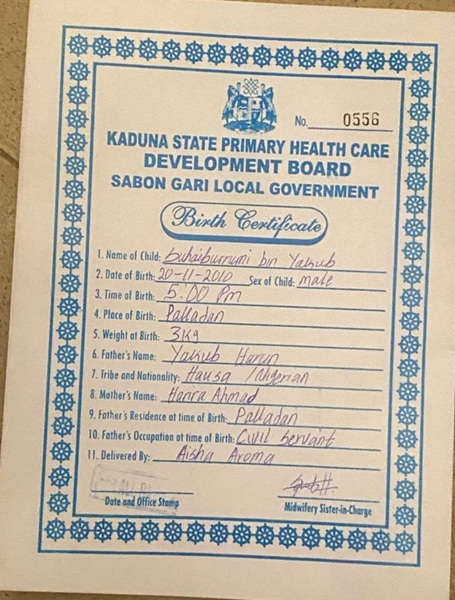 No. 0556
KADUNA STATE PRIMARY HEALTH CARE
DEVELOPMENT BOARD
SABON GARI LOCAL GOVERNMENT
Birth Certificate
1. Name of Child: Suhaiburrumi bin Yakub
2. Date of Birth: 20-11-2010 Sex of Child: male
3. Time of Birth: 5:00 Pm
4. Place of Birth: Palladan
5. Weight at Birth: 3Kg
6. Father's Name: Yakub Harun
7. Tribe and Nationality: Hausa / Nigerian
8. Mother's Name: Ahmad
9. Father's Residence at time of Birth: Palladan
10. Father's Occupation at time of Birth: Civil Servant
11. Delivered By: Aisha Aroma
Date and Office Stamp
Midwifery Sister-in-Charge